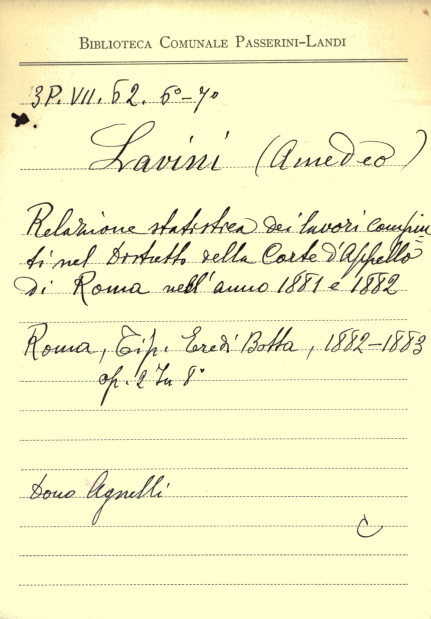 BIBLIOTECA COMUNALE PASSERINI-LANDI
3P. VII. 62. 6°-7°
Lavini (Amedeo)
Relazione statistica dei lavori compiu=
ti nel Distretto della Corte d'Appello
di Roma nell'anno 1881 e 1882
Roma, Tip. Eredi Botta, 1882-1883
op. 2 In 8°
Dono Agnelli
C